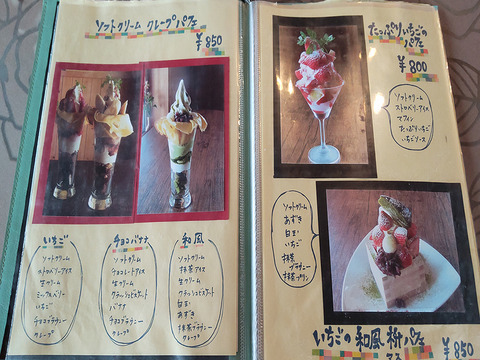 ソフトクリーム クレープパフェ
¥850
いちご
ソフトクリーム
ストロベリーアイス
生クリーム
ミックスベリー
いちご
チョコブラウニー
クレープ
チョコバナナ
ソフトクリーム
チョコレートアイス
生クリーム
クラッシュビスケット
バナナ
チョコブラウニー
クレープ
和風
ソフトクリーム
抹茶アイス
生クリーム
クラッシュビスケット
白玉
あずき
抹茶ブラウニー
クレープ
たっぷりいちごの
パフェ
¥800
ソフトクリーム
ストロベリーアイス
たっぷりいちご
いちごソース
ソフトクリーム
あずき
白玉
いちご
抹茶
ブラウニー
抹茶プリン
いちごの和風枡パフェ
¥850